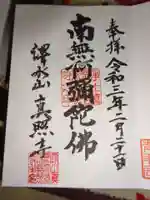 奉拝 令和三年二月二十日
南無阿彌陀佛
澤水山 真照寺